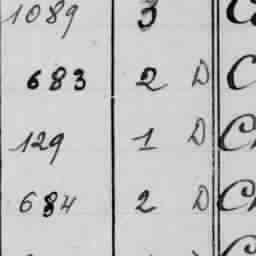 1089 3 C
683 2 D C
129 1 D C
684 2 D C